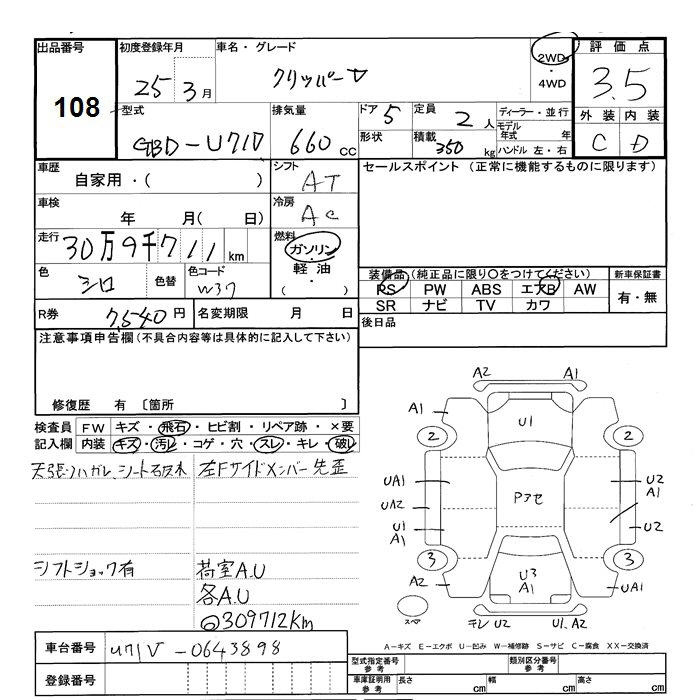 出品番号 初度登録年月 車名・グレード 2WD・4WD 評価点
108 25 3月 クリッパーV 3.5
型式 排気量 ドア 5 定員 2人 ディーラー・並行 外装 内装
GBD-U71V 660cc 形状 積載 350kg モデル年式 年 C D
ハンドル 左・右
車歴 シフト セールスポイント (正常に機能するものに限ります)
自家用・( ) AT
車検 冷房
年 月( 日) AC
走行 燃料
30万9千711km ガソリン・軽油・( )
色 シロ 色替 色コード W37
装備品(純正品に限り○をつけてください) 新車保証書
PS PW ABS エアB AW 有・無
SR ナビ TV カワ
R券 7,540円 名変期限 月 日 後日品
注意事項申告欄(不具合内容等は具体的に記入して下さい)
修復歴 有 〔箇所 〕
検査員記入欄 FW キズ・飛石・ヒビ割・リペア跡・×要
内装 キズ・汚レ・コゲ・穴・スレ・キレ・破レ
天張ハガレ、シート 左Fサイドメンバー先歪
シフトショック有 荷室A.U
各A.U
◎309712Km
A2 A1
A1 U1
2 2
UA1 U2 A1
UA2 Pアセ
U1 A1 U2
3 3
A2 U3 A1 UA1
スペア チレ U2 U1.A2
A-キズ E-エクボ U-凹み W-補修跡 S-サビ C-腐食 XX-交換済
車台番号 U71V-0643898
登録番号
型式指定番号参考 類別区分番号参考
車庫証明用参考 長さ cm 幅 cm 高さ cm